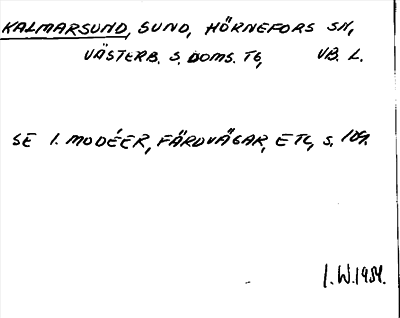 KALMARSUND, SUND, HÖRNEFORS SN,
VÄSTERB. S. DOMS. TG, VB. L.
SE I. MODÉER, FÄRDVÄGAR, ETC, S. 109.
I.W.1984.